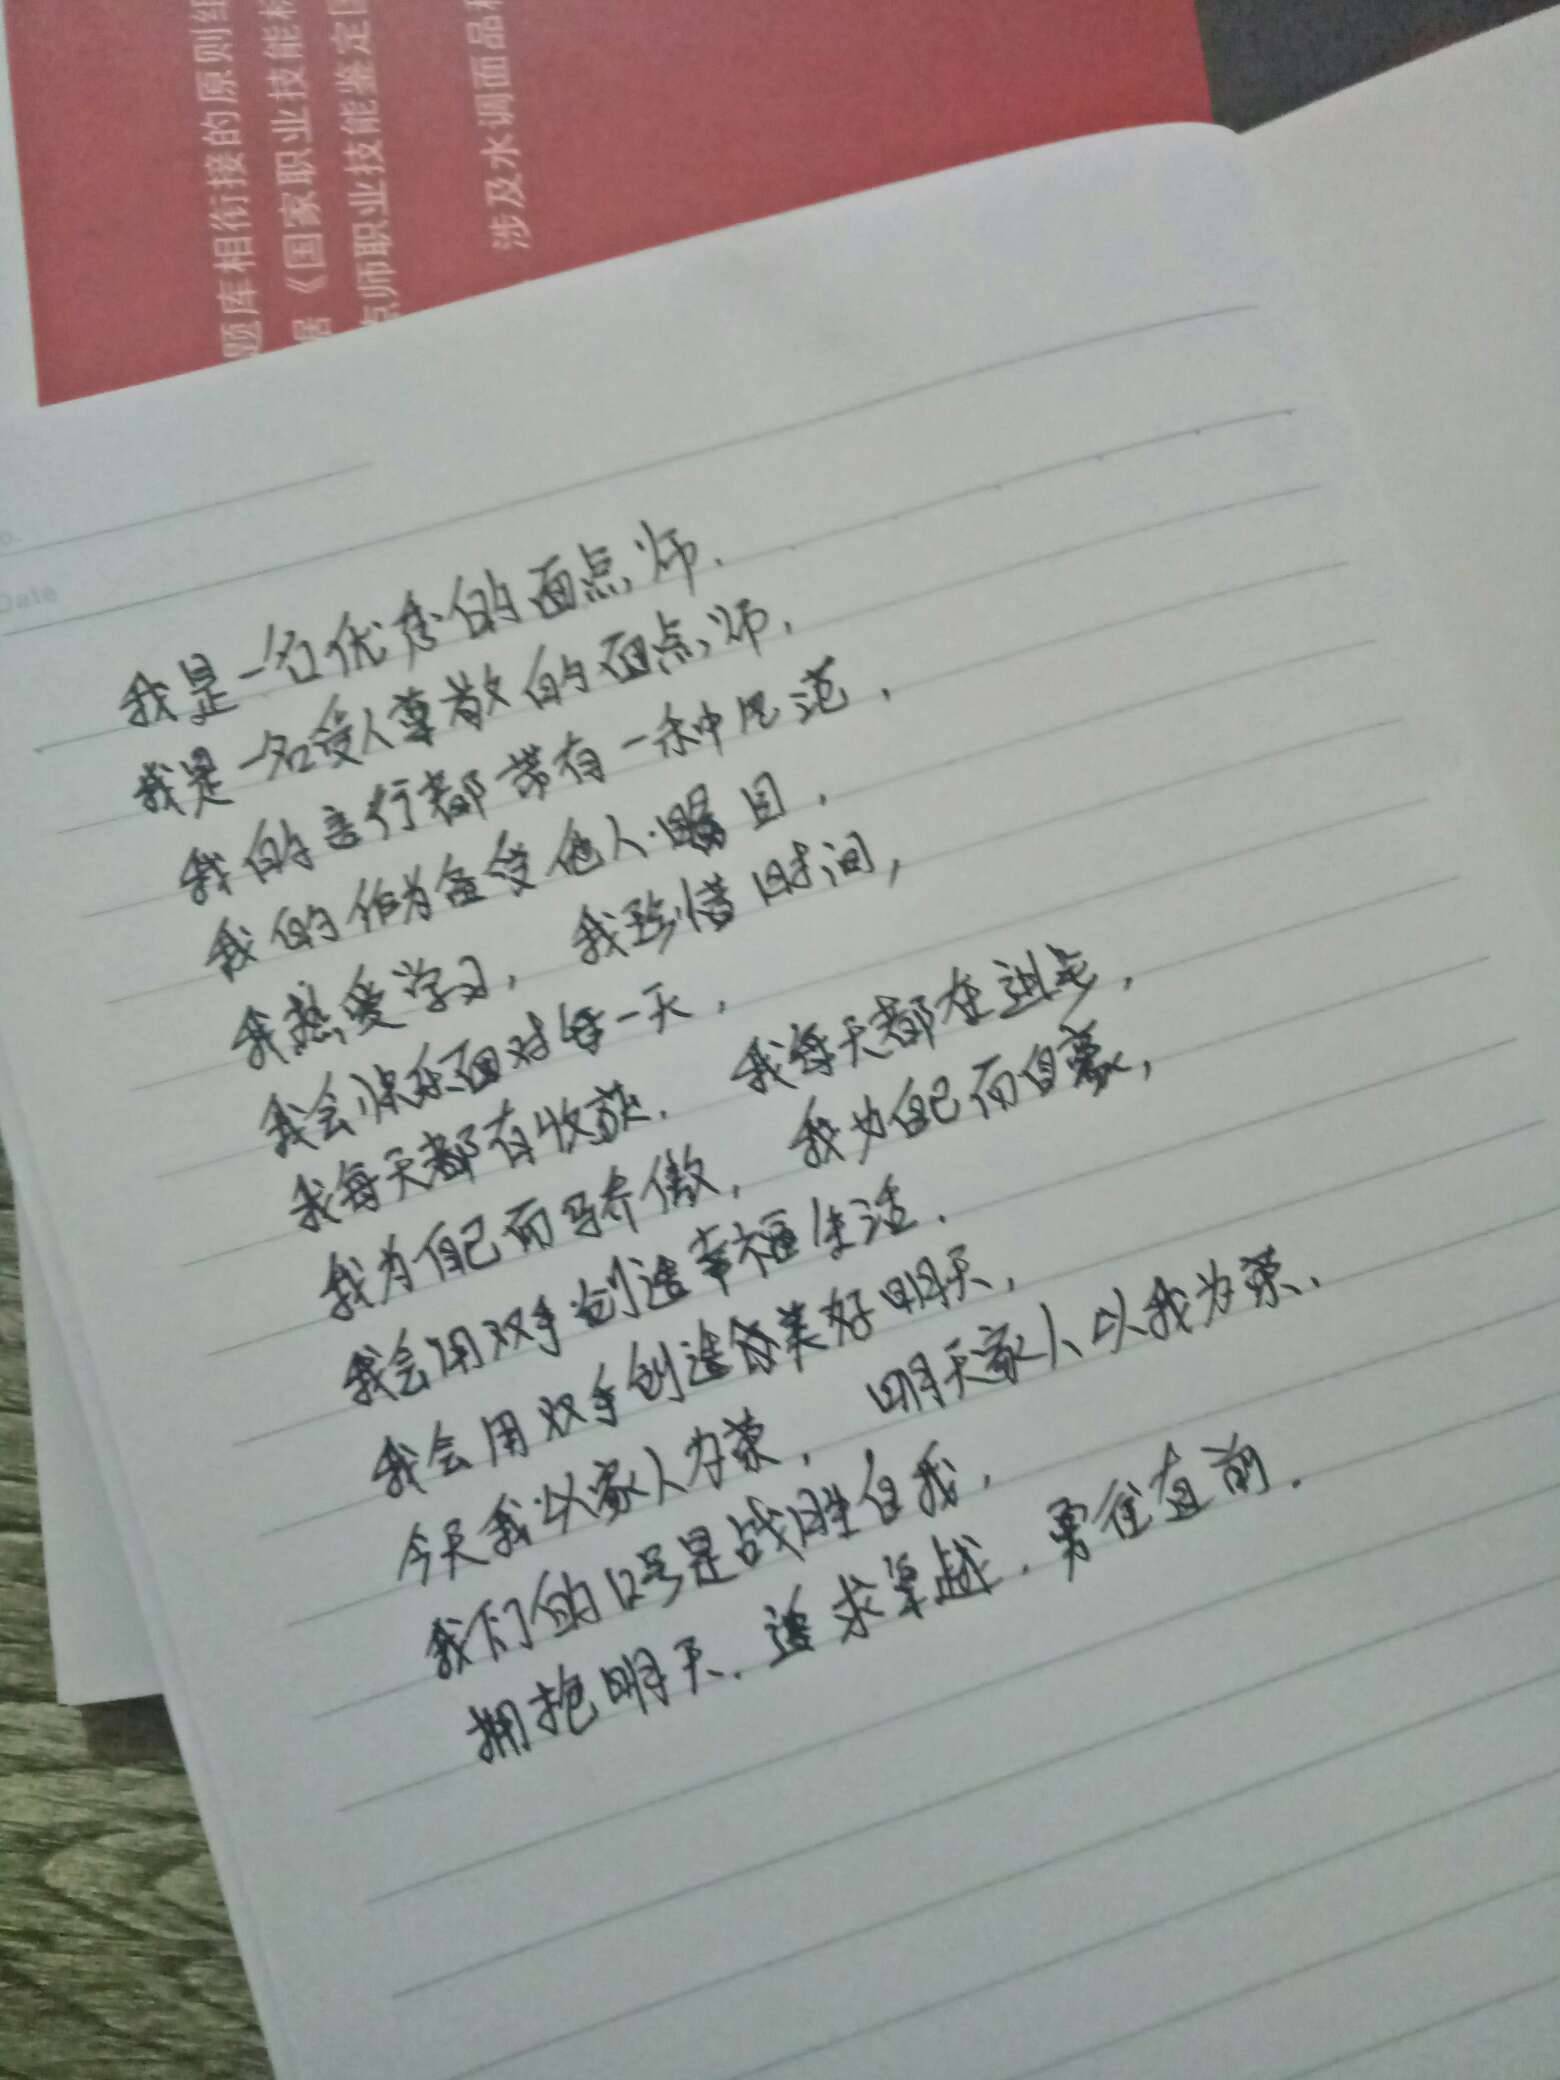 题库相衔接的原则
《国家职业技能
点师职业技能鉴定
涉及水调面品
Date
我是一名优秀的面点师.
我是一名受人尊敬的面点师,
我的言行都带有一种风范,
我的作为备受他人瞩目,
我热爱学习, 我珍惜时间,
我会快乐面对每一天,
我每天都有收获. 我每天都在进步,
我为自己而骄傲, 我为自己而自豪,
我会用双手创造幸福生活.
我会用双手创造美好明天,
今天我以家人为荣, 明天家人以我为荣、
我们的口号是战胜自我,
拥抱明天. 追求卓越. 勇往直前.